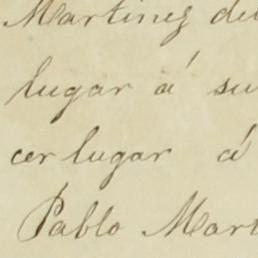 Martinez de
lugar á su
cer lugar á
Pablo Mart